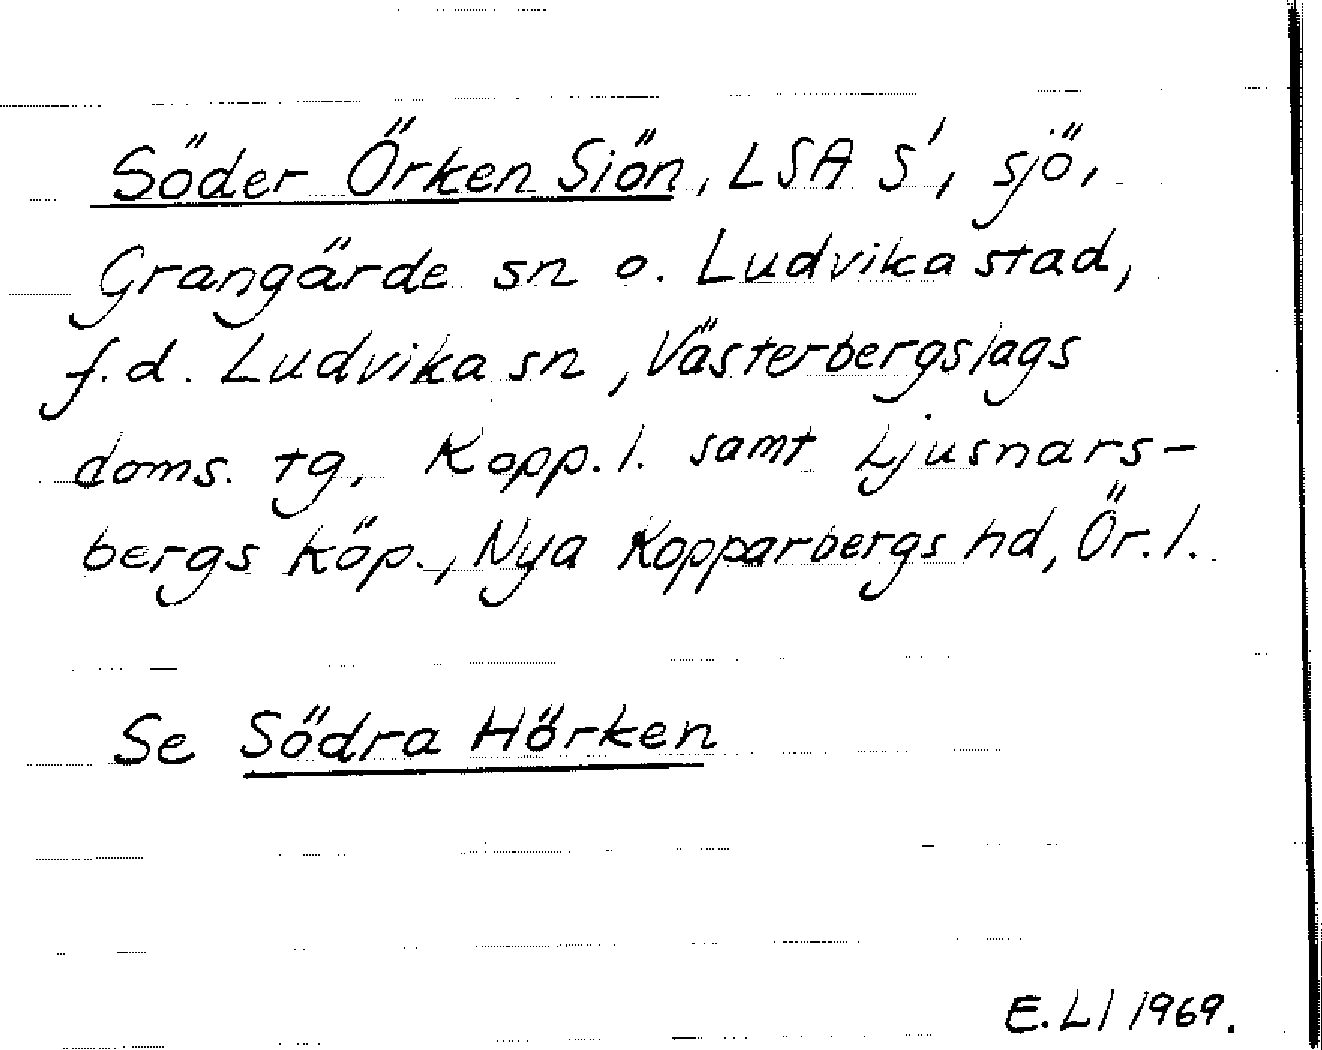 Söder Örken Siön, LSA S', sjö,
Grangärde sn o. Ludvika stad,
f.d. Ludvika sn, Västerbergslags
doms. tg, Kopp. l. samt Ljusnars-
bergs köp., Nya Kopparbergs hd, Ör. l.
Se Södra Hörken
E. Ll 1969.